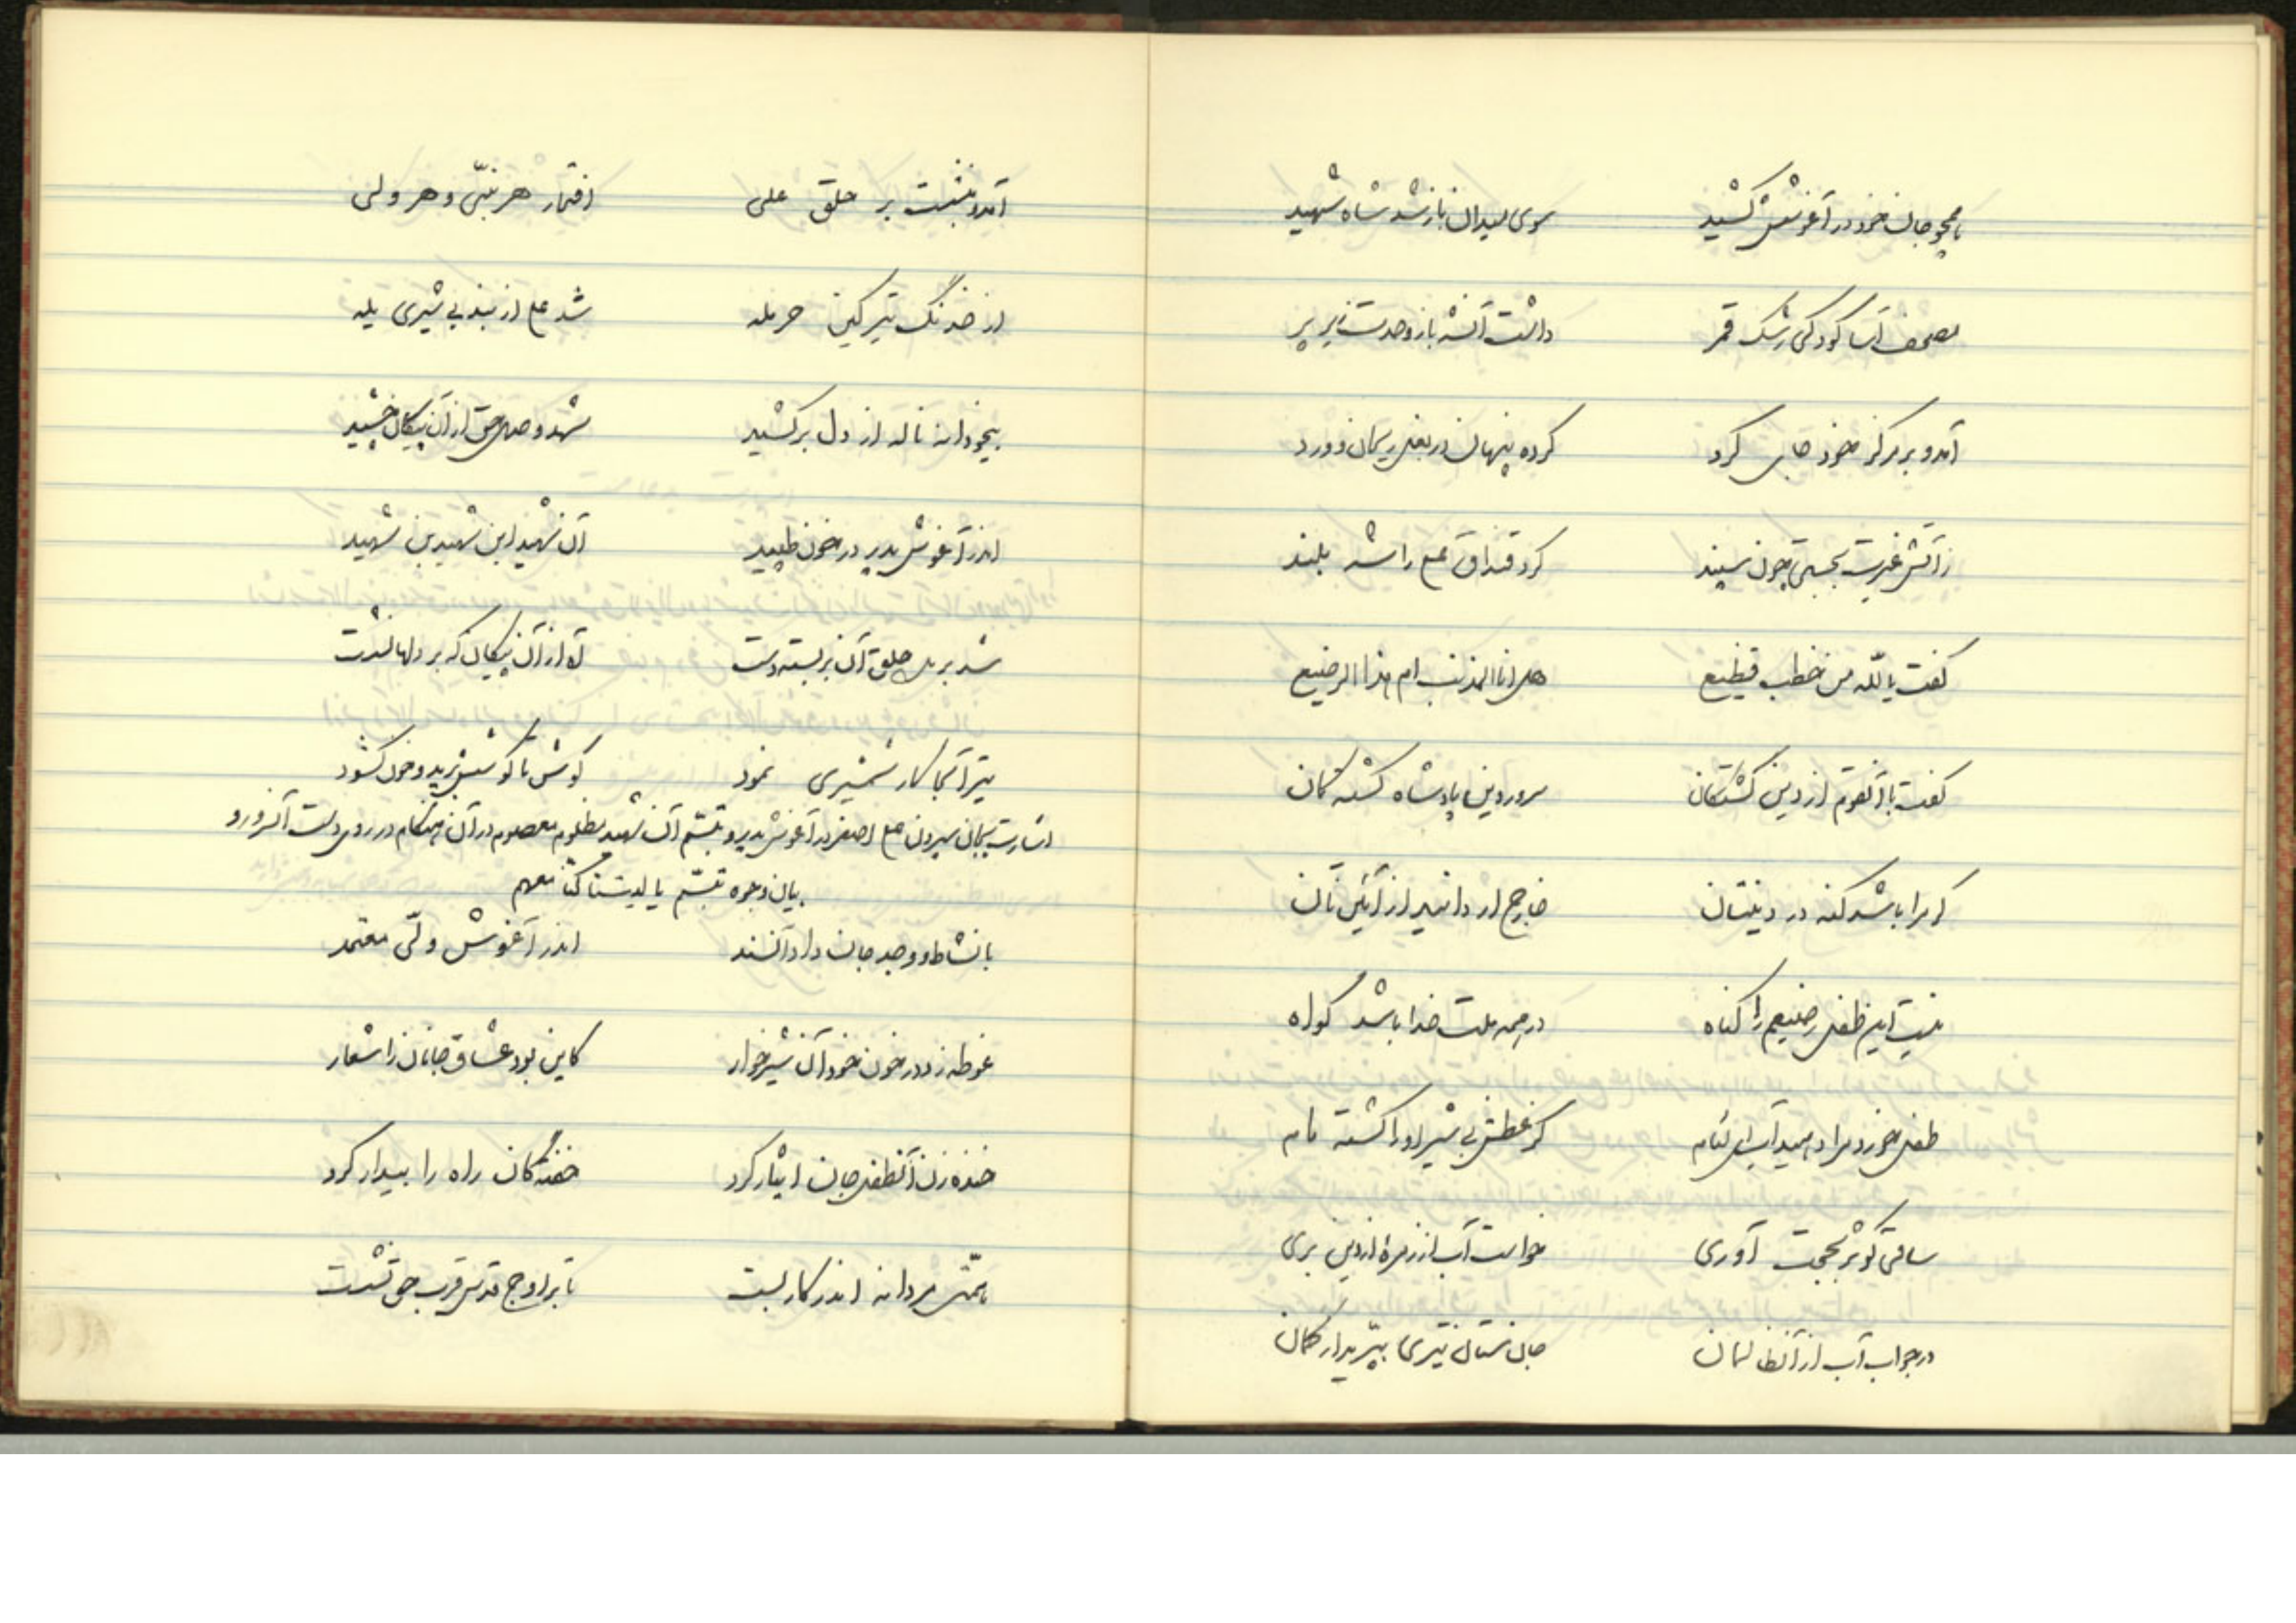 همچو جان خود در آغوشش کشید سوی میدان باز شد شاه شهید
مصحف آسا کودکی رشک قمر داشت آنشه باز وحدت زیر پر
آمد و بر مرکز خود جای کرد کرده پنهان در بغل ریحان و ورد
ز آتش غیرت بجستی چون سپند کرد قنداق علی را شه بلند
گفت یا لله من خطب فظیع هل انا المذنب ام هذا الرضیع
گفت با آنقوم از دین گشتگان سرور دین پادشاه کشتگان
گر مرا باشد گنه در دینتان خارج ار دانید از آئینتان
نیست این طفل رضیعم را گناه در همه ملت خدا باشد گواه
طفل خورد مرا دهید آب ای لئام کز عطش بی شیر او را گشته مام
ساقی کوثر بحجت آوری خواست آب از زمرهٔ از دین بری
در جواب آب از آنظالمان جان ستان تیری بپرید از کمان
آمد و بنشست بر حلق علی افتخار هر نبیّ و هر ولی
از خدنگ تیر کین حرمله شد علی از بند بی شیری یله
بیخودانه ناله از دل برکشید شهد وصل حق از آن پیکان چشید
اندر آغوش پدر در خون طپید آن شهید ابن شهید بن شهید
شد برید حلق آن بربسته دست آه از آن پیکان که بر دلها نشست
تیر آنجا کار شمشیری نمود گوش تا گوشش برید و خون گشود
اشارت بجان سپردن علی اصغر در آغوش پدر و تبسّم آن شهید مظلوم معصوم در آن هنگام در روی دست آنسرور و
بیان وجوه تبسّم یا لیتنا کنّا معهم
با نشاط و وجد جان داد آنسند اندر آغوش ولیّ معتمد
غوطه زد در خون خود آن شیرخوار کاین بود عشاق جانان را شعار
خنده زن آنطفل جان ایثار کرد خفتگان راه را بیدار کرد
همّتی مردانه اندر کار بست تا بر اوج قدس قرب حق نشست